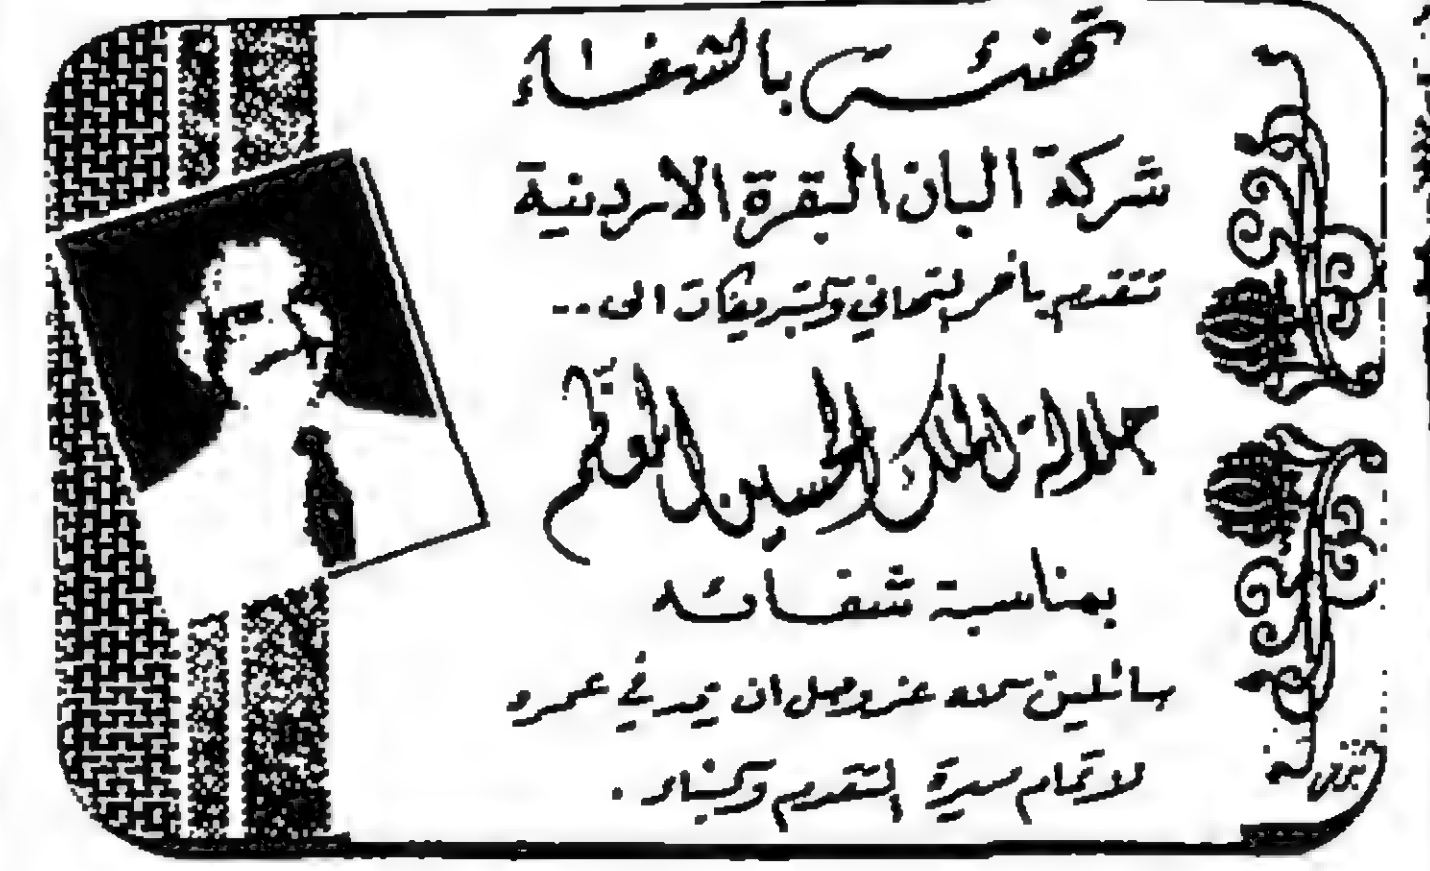 تهنئة بالشفاء
شركة البان البقرة الاردنية
تتقدم بأحر التهاني والتبريكات الى..
جلالة الملك الحسين المعظم
بمناسبة شفائه
سائلين الله عز وجل ان يمد في عمره
لاتمام مسيرة التقدم والبناء.